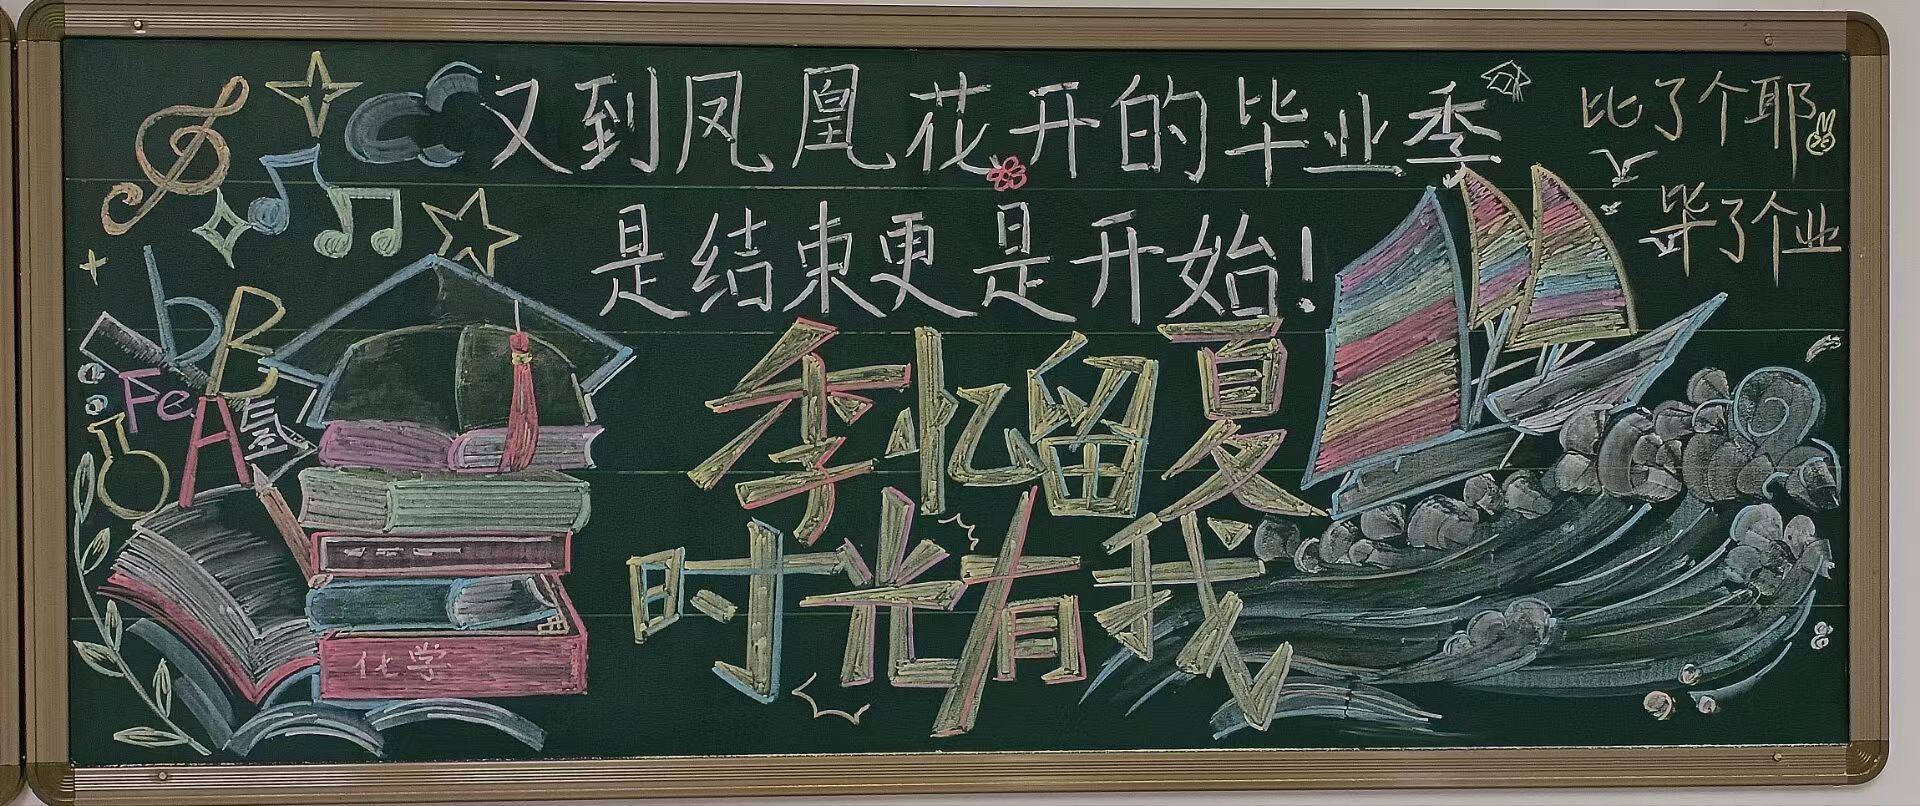 又到凤凰花开的毕业季
是结束更是开始！
季忆留夏
时光有我
比了个耶
毕了个业
b
B
Fe
A
氢
化学